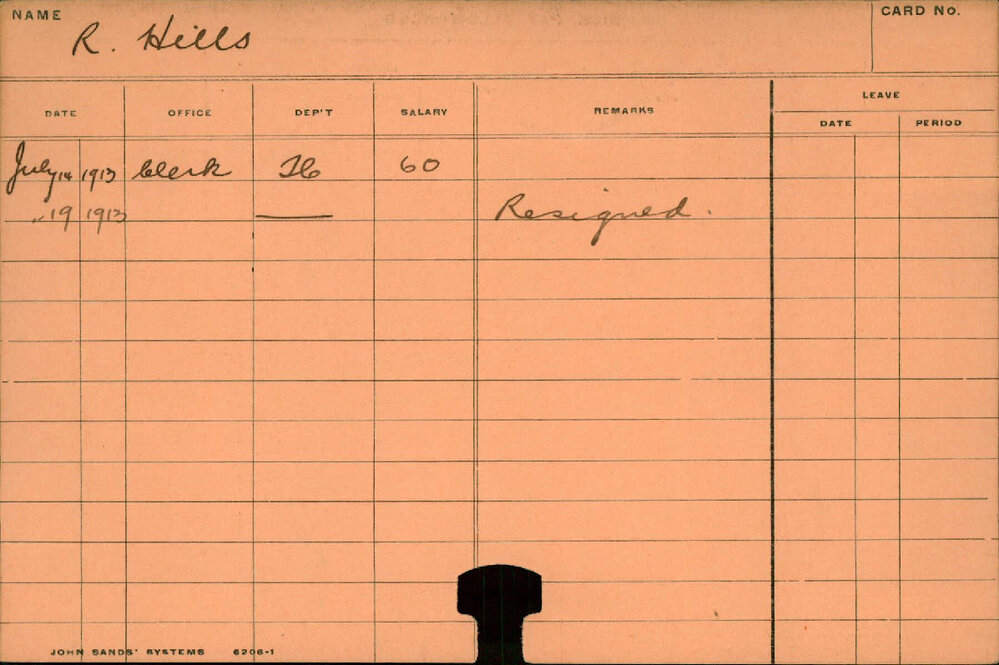 NAME R. Hills CARD No.
LEAVE
DATE OFFICE DEP'T SALARY REMARKS DATE PERIOD
July 14 1913 Clerk 60
" 19 1913 Resigned.
JOHN SANDS' SYSTEMS 6206-1